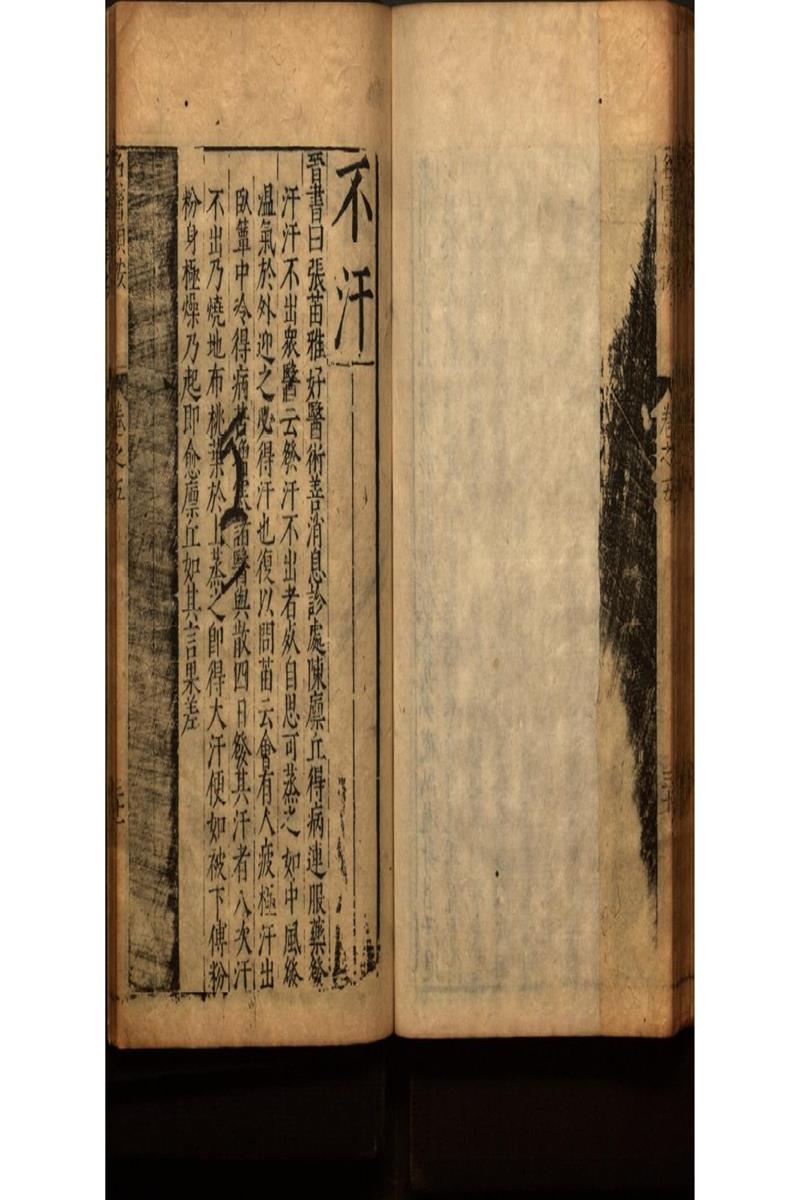 不汗
晉書曰張苗雅好醫術善消息診處陳廩丘得病連服藥發
汗汗不出衆醫云發汗不出者死自思可蒸之如中風發
温氣於外迎之必得汗也復以問苗云曾有人疲極汗出
臥簟中冷得病苦 諸醫與散四日發其汗者八次汗
不出乃燒地布桃葉於上蒸之即得大汗便如被下傅粉
粉身極燥乃起即愈廩丘如其言果差
名醫類案 卷之五
卷之五